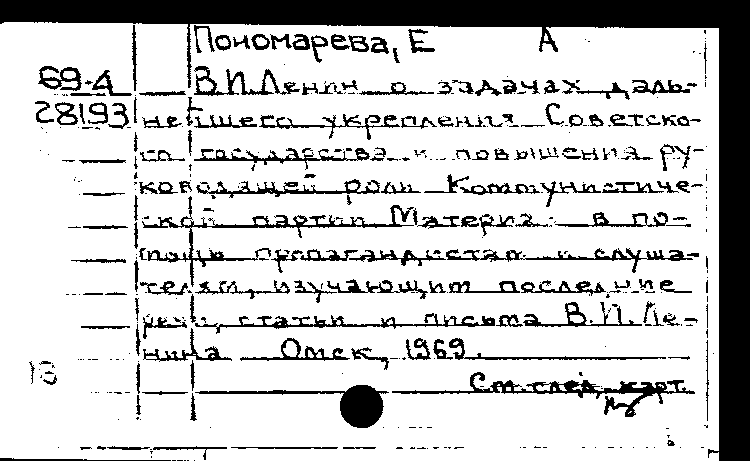 Пономарева, Е А
69-4
28193
В.И.Ленин о задачах даль-
нейшего укрепления Советско-
го государства и повышения ру-
ководящей роли Коммунистиче-
ской партии Материал в по-
мощь пропагандистам и слуша-
телям, изучающим последние
речи, статьи и письма В.И. Ле-
нина Омск, 1969.
18
См. след. карт.